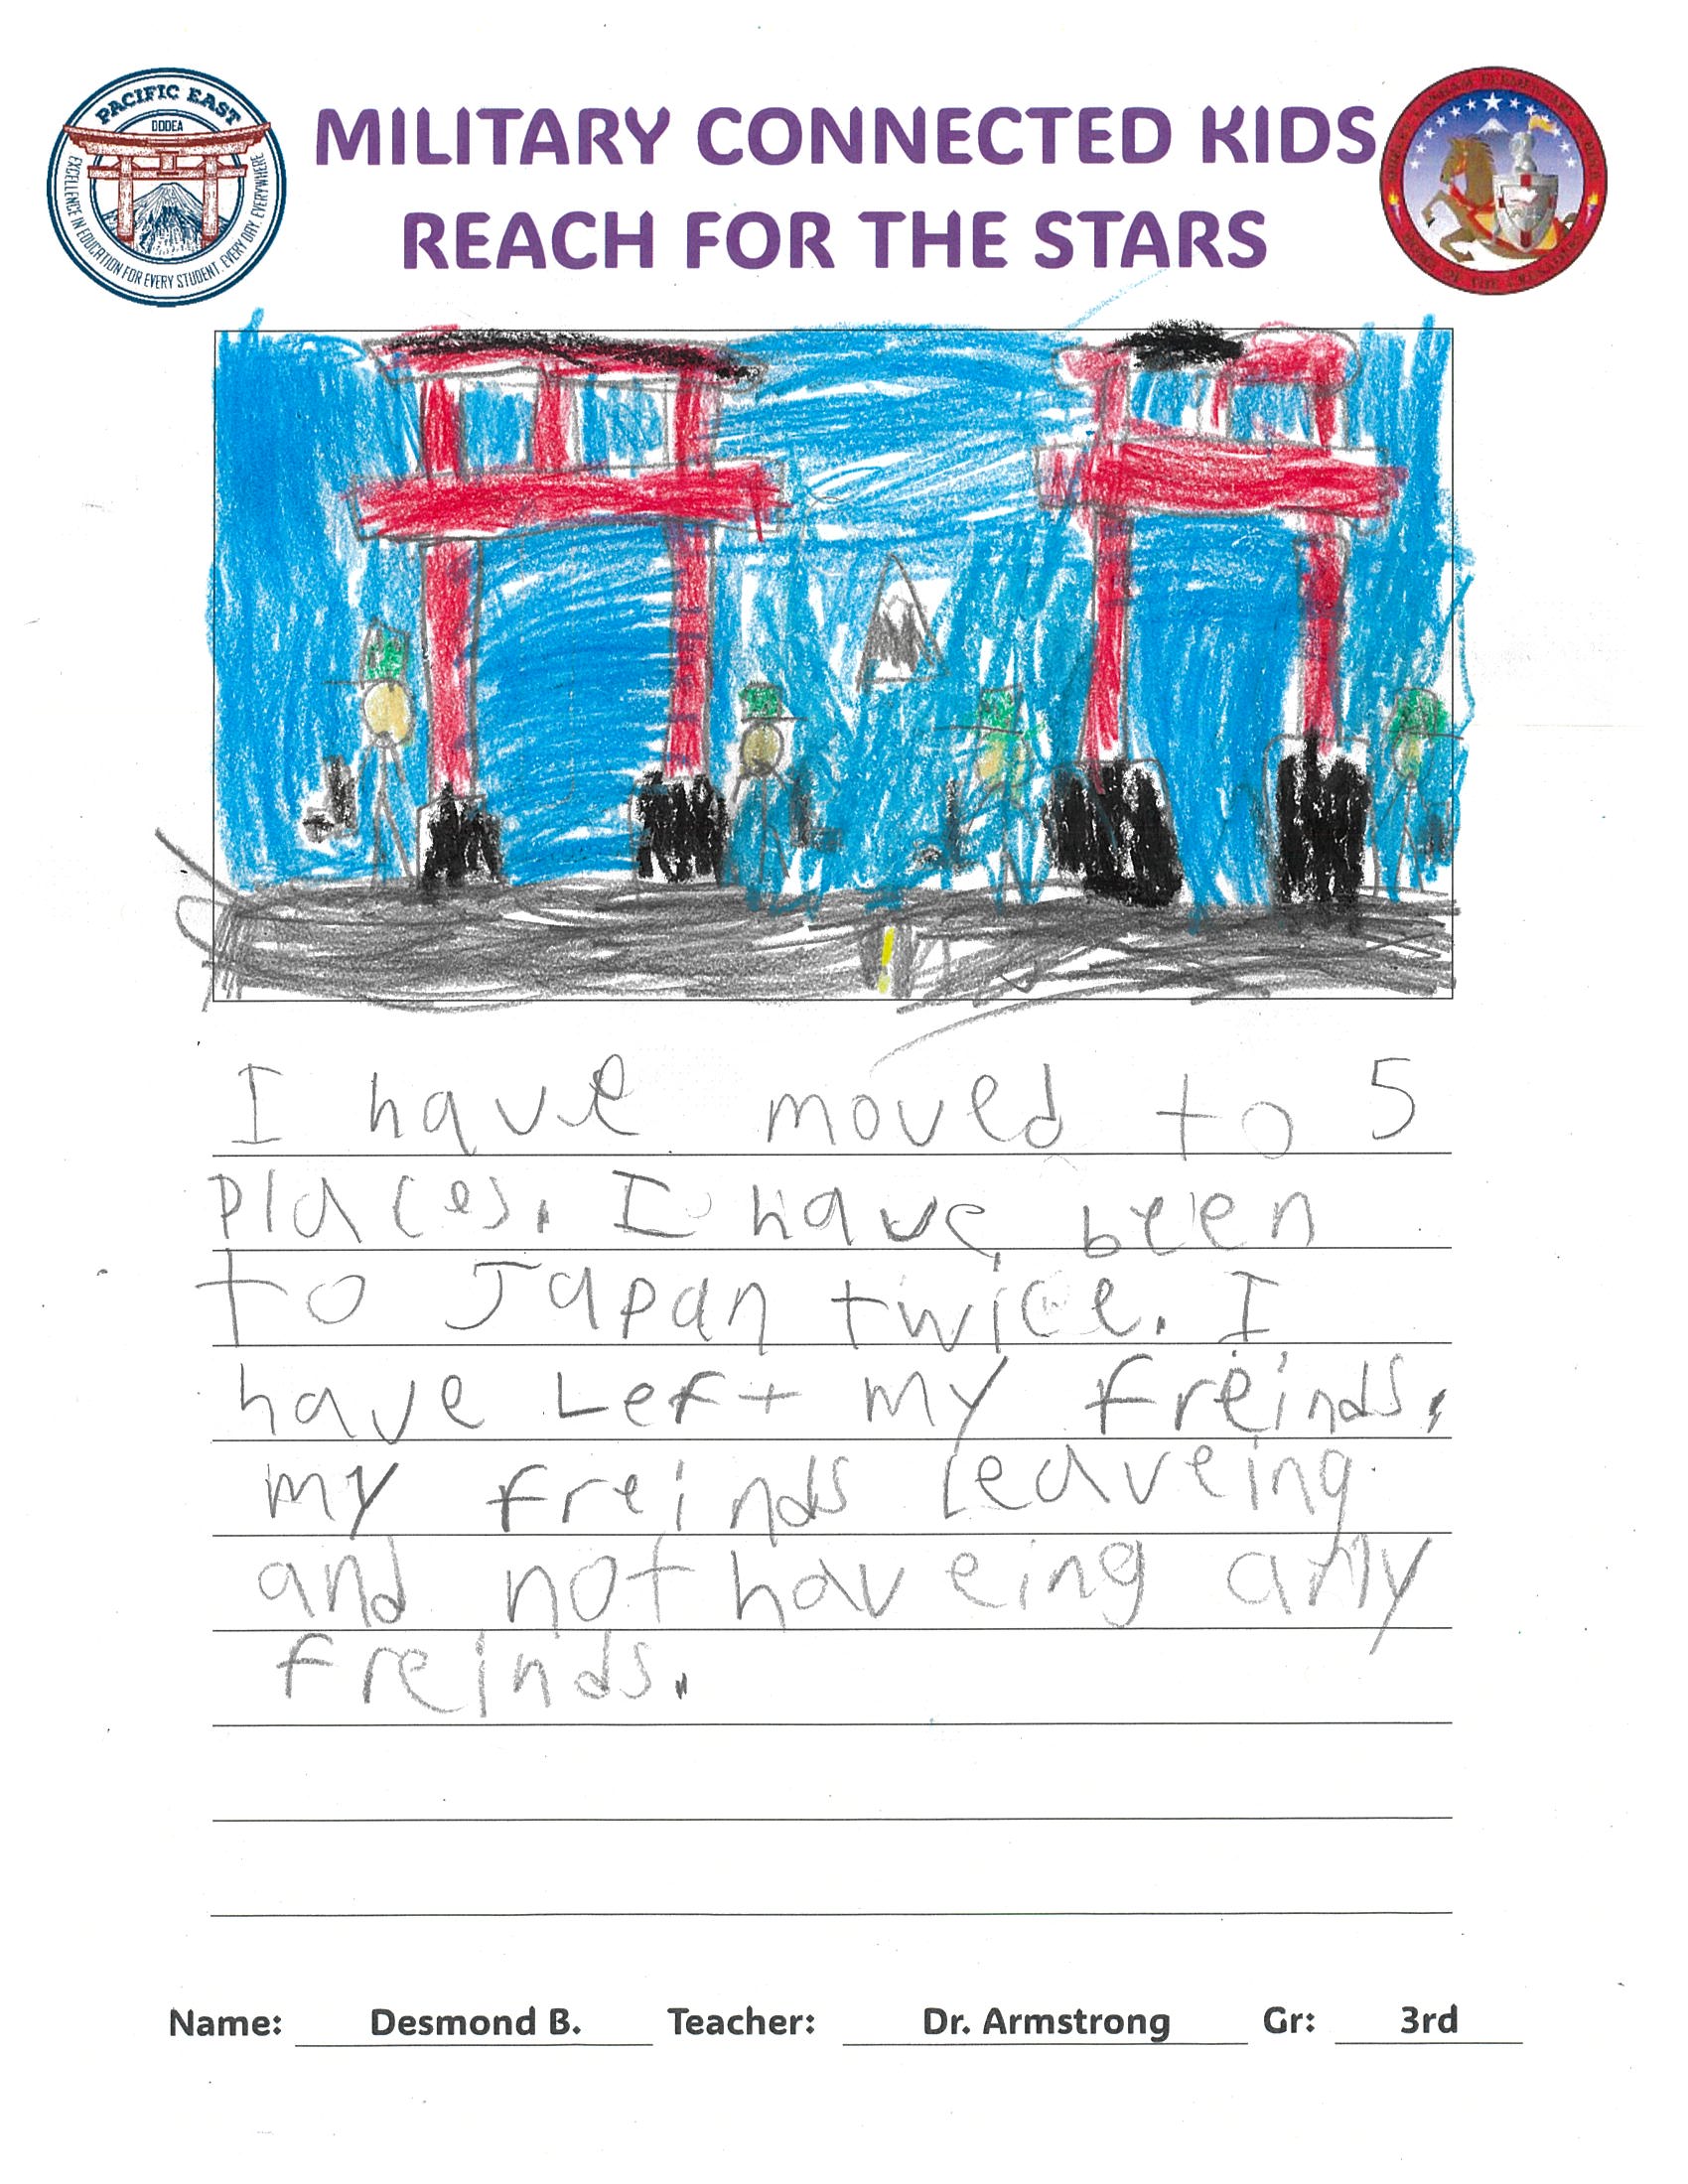 PACIFIC EAST
DODEA
EXCELLENCE IN EDUCATION FOR EVERY STUDENT, EVERY DAY, EVERYWHERE
MILITARY CONNECTED KIDS
REACH FOR THE STARS
I have moved to 5
places. I have been
to Japan twice. I
have Left my freinds,
my freinds leaveing
and not haveing any
freinds.
Name: Desmond B. Teacher: Dr. Armstrong Gr: 3rd